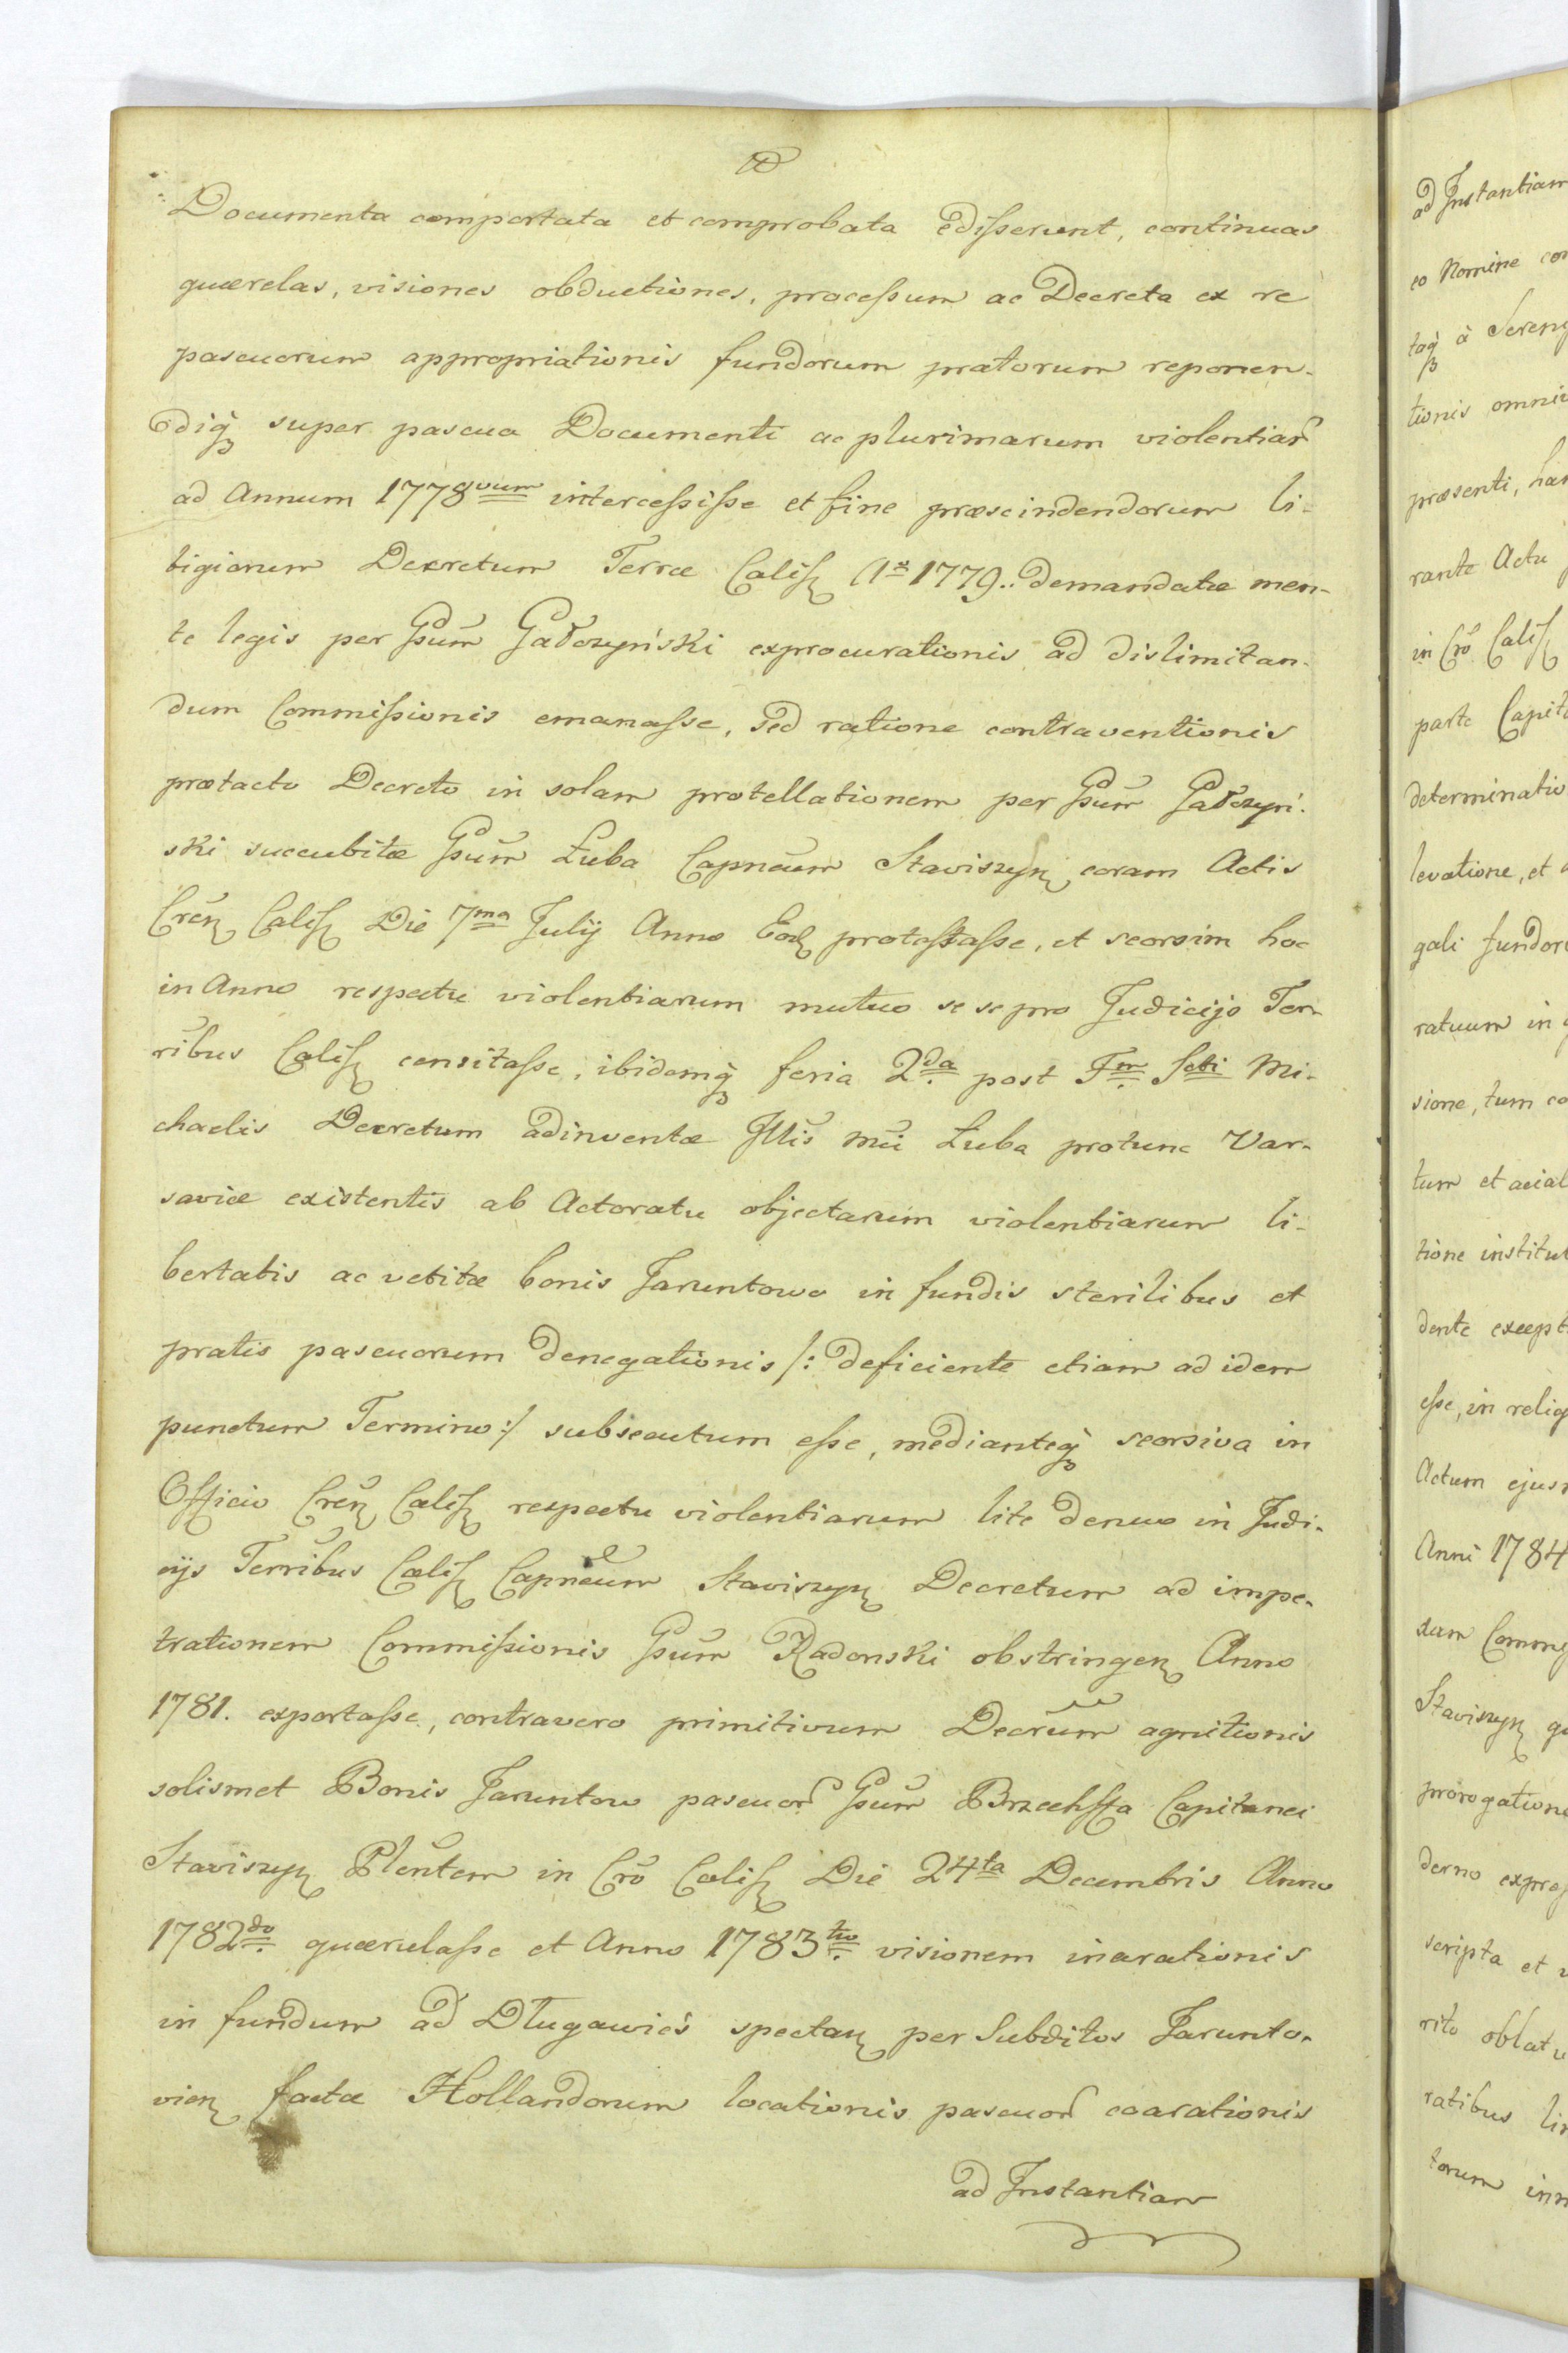 Documenta comportata et comprobata edisserunt, continuas
quærelas, visiones obductiones, processum ac Decreta ex re
pascuorum appropriationis fundorum pratorum reponen-
diq̀ꝫ super pascua Documenti ac plurimarum violentiar̃
ad Annum 1778vum intercessisse et fine præscindendorum li-
tigiorum Decretum Terræ Calis 1779.. demandatæ men-
te legis per Gsum̃ Gałczyński exprocurationis ad dislimitan-
dum Commissionis emanasse, sed ratione contraventionis
prætacto Decreto in solam protellationem per Gsum̃ Gałczyń-
ski succubitæ Gsum̃ Łuba Capneũm Staviszyn coram Actis
Creñ Calis Die 7ma Julij Anno Eod protestasse, et seorsim hoc
in Anno respectu violentiarum mutuo se se pro Judicijs Ter-
ribus Calis censitasse, ibidemq̀ꝫ feria 2da post Fm Scti Mi-
chaelis Decretum adinventæ Illis̃ mei Łuba protunc Var-
saviæ existentis ab Actoratu objectarum violentiarum li-
bertatis ac vetitæ bonis Jaruntowo in fundis sterilibus et
pratis pascuorum denegationis /: deficiente etiam ad idem
punctum Termino :/ subsecutum esse, medianteq̀ꝫ seorsiva in
Officio Creñ Calis respectu violentiarum lite denuo in Judi-
cijs Terribus Calis Capneũm Staviszyn Decretum ad impe-
trationem Commissionis Gsum̃ Radonski obstringen Anno
1781. exportasse, contravero primitivum Decrũm agnitionis
solismet Bonis Jaruntow pascuor̃ Gsum̃ Brzechffa Capitanei
Staviszyn Pleñtem in Cro Calis Die 24ta Decembris Anno
1782do quærulasse et Anno 1783tio visionem inarationis
in fundum ad Długawieś spectan per Subditos Jarunto-
vien factæ Hollandorum locationis pascuor̃ coarationis
ad Instantiam
ad Instantiam
eo Nomine
præsenti,
rante Actu
in Cro Calis
parte
levatione, et
sione, tum
tum et
dente
esse, in
Actum
Anni 1784
Staviszyn
scripta et